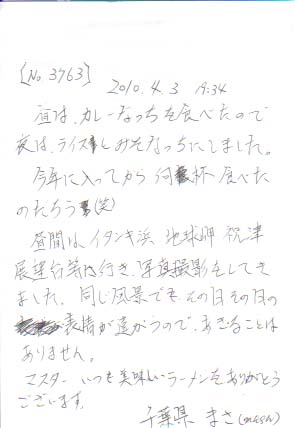 [No 3763]
2010.4.3 19:34
昼は、カレーなっちを食べたので
夜は、ライスとみそなっちにしました。
今年に入ってから何杯食べた
のだろう(笑)
昼間は、イタンキ浜、地球岬、祝津
展望台等に行き、写真撮影をしてき
ました。同じ風景でも、その日その日の
表情が違うので、あきることは
ありません。
マスターいつも美味しいラーメンをありがとう
ございます。
千葉県 まさ